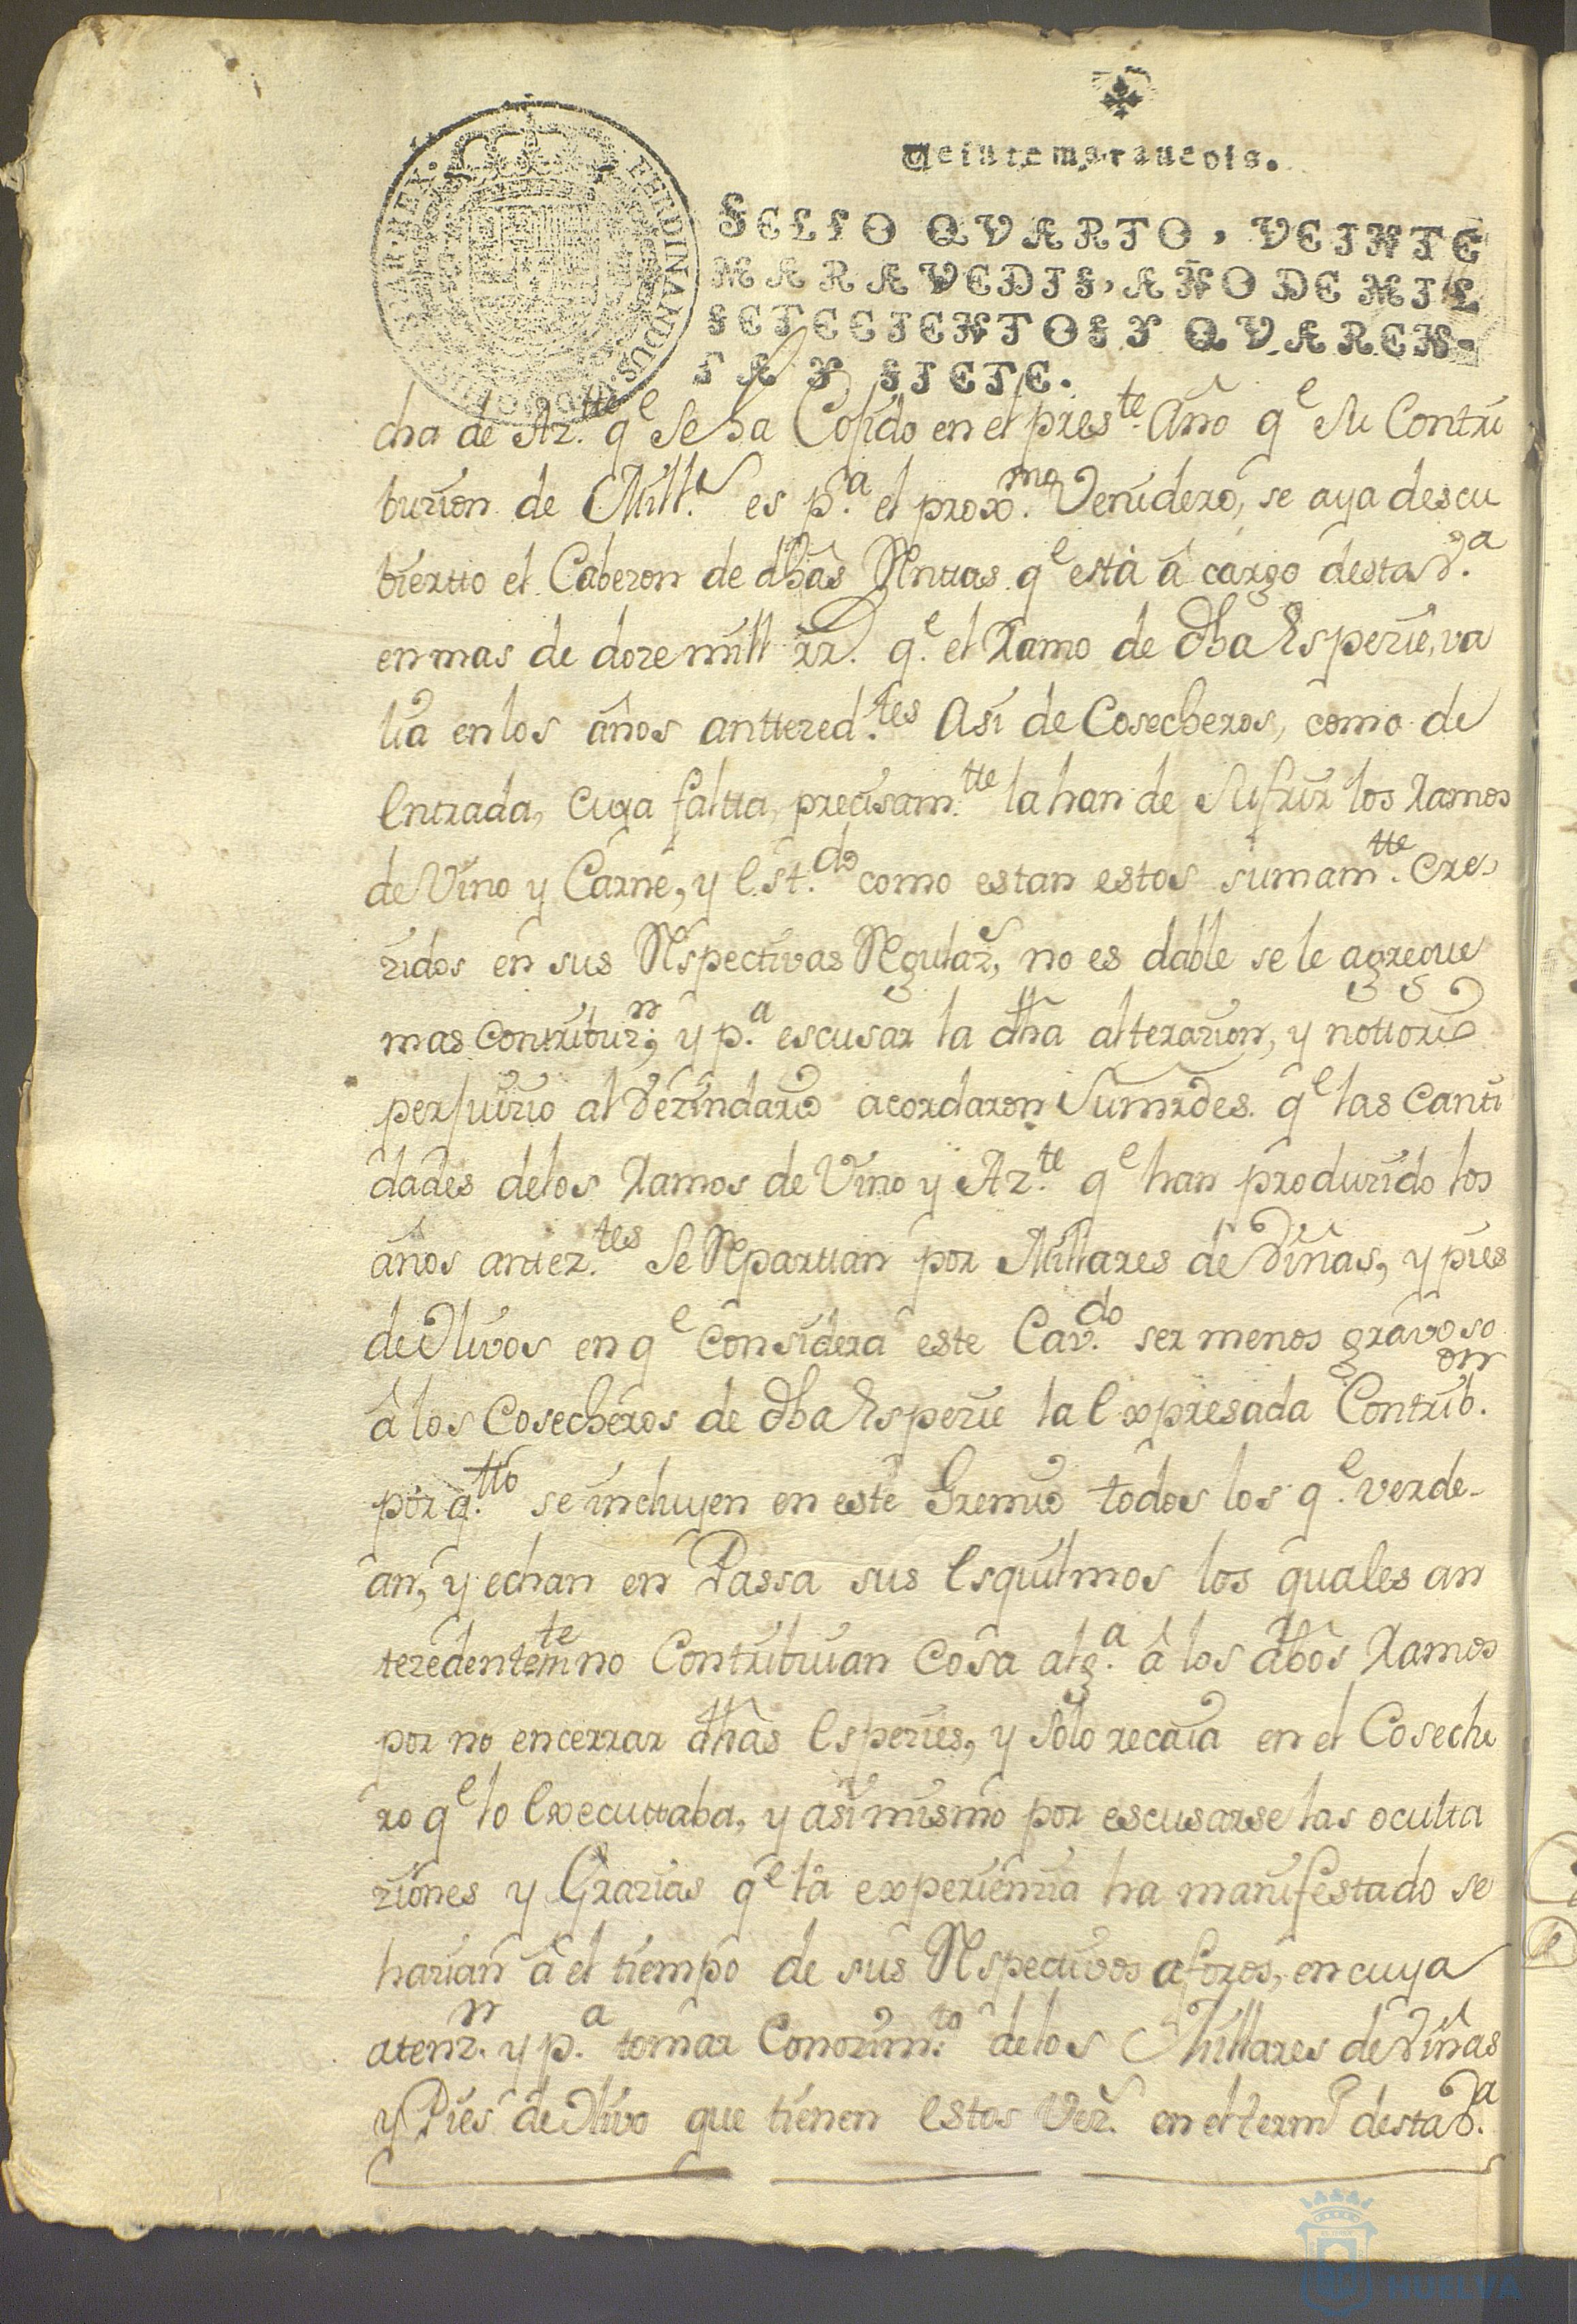 Veinte maravedis.
SELLO QVARTO, VEINTE
MARAVEDIS, AÑO DE MIL
SETECIENTOS Y QVAREN-
TA Y SIETE.
FERDINANDUS
cha de Az.tte q.e se ha Cojido en el pres.te Año q.e su Contri
buzion de Mill.s es p.a el prox.mo Venidero, se aya descu
biertto el Cabezon de dhas Renttas q.e està â cargo desta V.a
en mas de doze mill rr.s q.e el Ramo de dha Espezie, va
lia en los años anttezed.tes Asi de Cosecheros, como de
Entrada, Cuya faltta, precisam.tte la han de sufrir los Ramos
de Vino y Carne, y est.do como estan estos sumam.tte Cre
zidos en sus Respectivas Regulaz.s, no es dable se le agregue
mas contribuz.n; y p.a escusar la dha alterazion, y nottorio
perjuizio al Vezindario acordaron Sumrdes. q.e las Canti
dades de los Ramos de Vino y Az.te q.e han produzido los
años antez.tes se Reparttan por Millares de Viñas, y pies
de Olivos en q.e Considera este Cav.do ser menos gravoso
â los Cosecheros de dha Espezie la Expresada Contrib.on
por q.tto se incluyen en este Gremio todos los q.e verde-
an, y echan en Passa sus Esquilmos los quales an
tezedentem.te no Contribuian Cosa alg.a â los dhos Ramos
por no encerrar dhas Espezies, y solo recaia en el Coseche
ro q.e lo Executtaba, y asi mismo por escusarse las oculta
ziones y Grazias q.e la experienzia ha manifestado se
harian â el tiempo de sus Respectivos aforos, en cuya
atenz.n y p.a tomar Conozim.to de los Millares de Viñas
y Pies de Olivo que tienen estos Vez.s en el term.o desta V.a
HUELVA